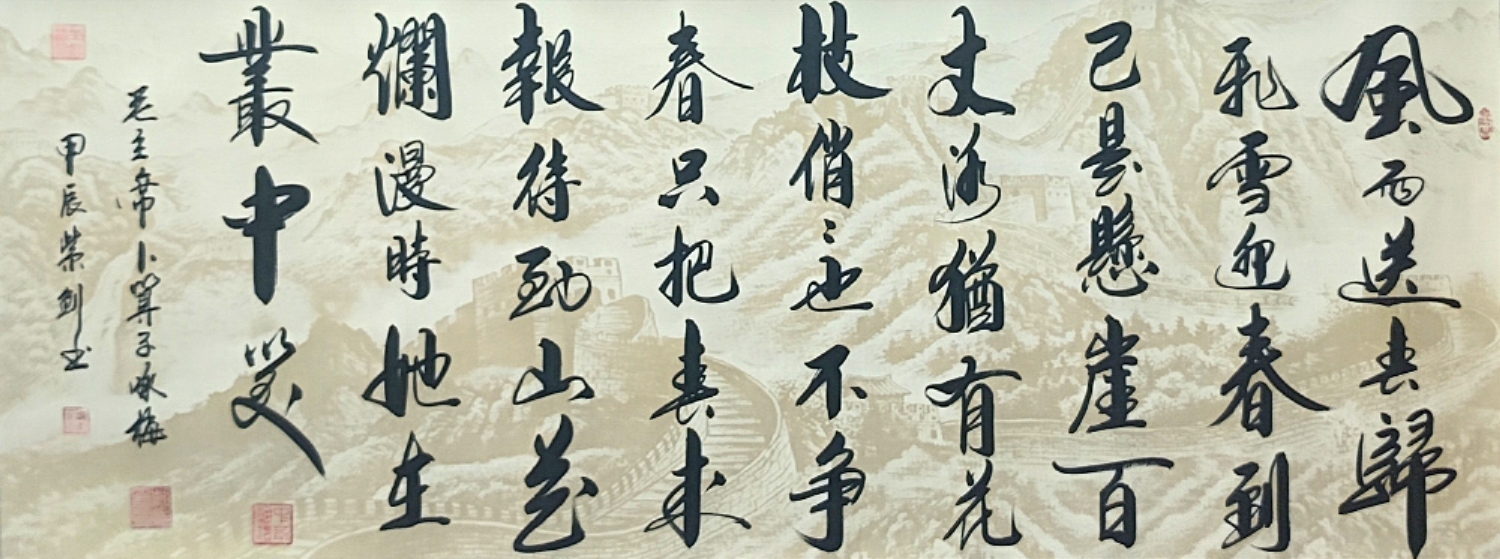 風雨送春歸
飛雪迎春到
已是懸崖百
丈冰猶有花
枝俏〻也不争
春只把春来
報待到山花
爛漫時她在
叢中笑
毛主席卜算子咏梅
甲辰榮剑书